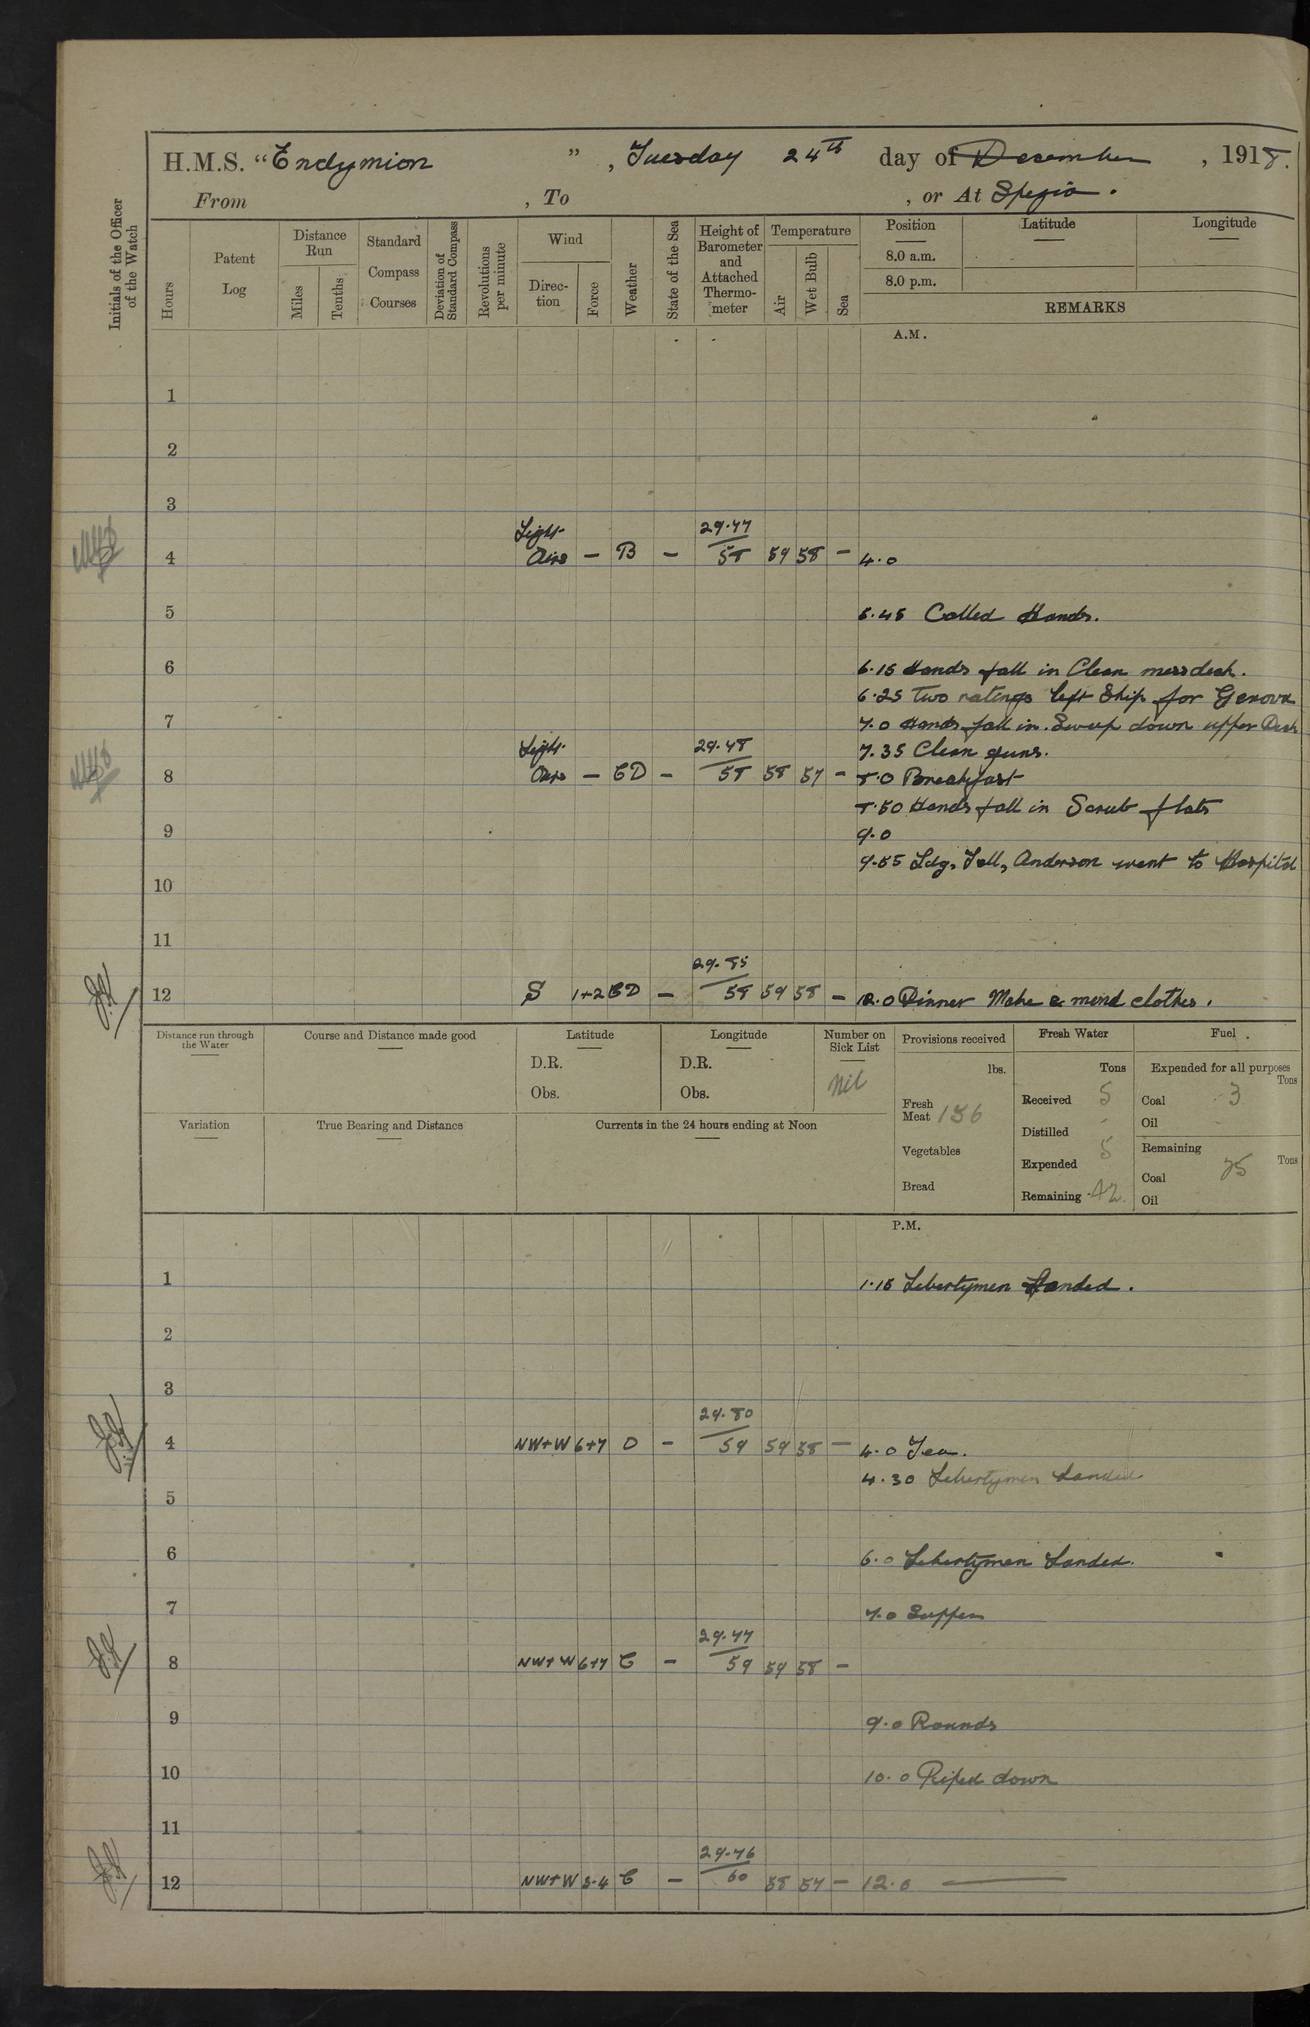 H.M.S. "Endymion", Tuesday 24th day of December, 1918.
From , To , or At Spezia.
Initials of the Officer of the Watch
Hours
Patent Log
Distance Run
Miles
Tenths
Standard Compass Courses
Deviation of Standard Compass
Revolutions per minute
Wind
Direction
Force
Weather
State of the Sea
Height of Barometer and Attached Thermometer
Temperature
Air
Wet Bulb
Sea
Position
Latitude
Longitude
8.0 a.m.
8.0 p.m.
REMARKS
A.M.
1
2
3
Light 29.77
4 Airs — B — 58 59 58 — 4.0
5 5.45 Called Hands.
6 6.15 Hands fall in Clean messdeck.
6.25 Two ratings left Ship for Genova
7 7.0 Hands fall in. Sweep down upper Deck
Light 29.78 7.35 Clean guns.
8 Airs — CD — 58 58 57 — 8.0 Breakfast
8.50 Hands fall in Scrub flats
9 9.0
9.55 Ldg. Tell, Anderson went to Hospital
10
11
29.85
12 S 1+2 CD — 58 59 58 — 12.0 Dinner Make & mend clothes.
Distance run through the Water
Course and Distance made good
Latitude
D.R.
Obs.
Longitude
D.R.
Obs.
Number on Sick List
Nil
Provisions received
lbs.
Fresh Meat 156
Vegetables
Bread
Fresh Water
Tons
Received 5
Distilled -
Expended 5
Remaining 42
Fuel
Expended for all purposes
Tons
Coal 3
Oil
Remaining
Tons
Coal 75
Oil
Variation
True Bearing and Distance
Currents in the 24 hours ending at Noon
P.M.
1 1.15 Libertymen Landed.
2
3
29.80
4 NW+W 6+7 O — 59 59 58 — 4.0 Tea.
4.30 Libertymen Landed
5
6 6.0 Libertymen Landed.
7 7.0 Supper
29.77
8 NW+W 6+7 C — 59 59 58 —
9 9.0 Rounds
10 10.0 Piped down
11
29.76
12 NW+W 3-4 C — 60 58 57 — 12.0 —